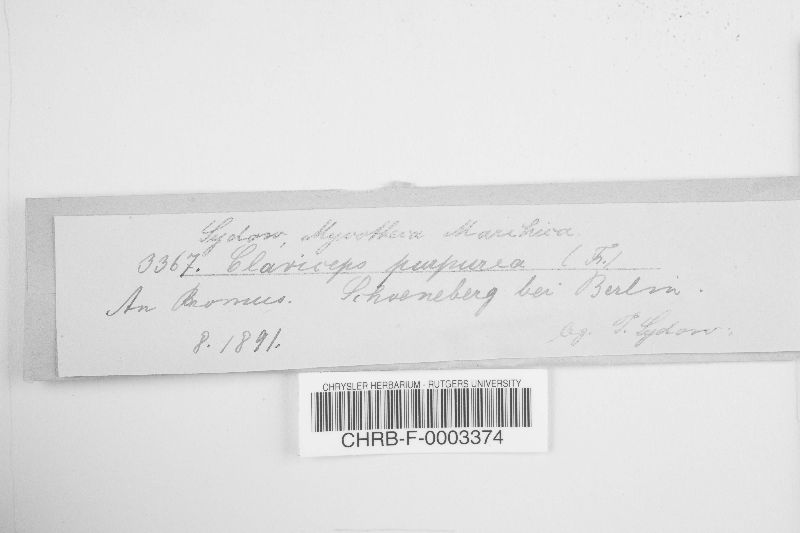 Sydow, Mycotheca Marchica.
3367. Claviceps purpurea (Fr.)
An Bromus. Schoeneberg bei Berlin.
8. 1891.
lg. P. Sydow.
CHRYSLER HERBARIUM - RUTGERS UNIVERSITY
CHRB-F-0003374